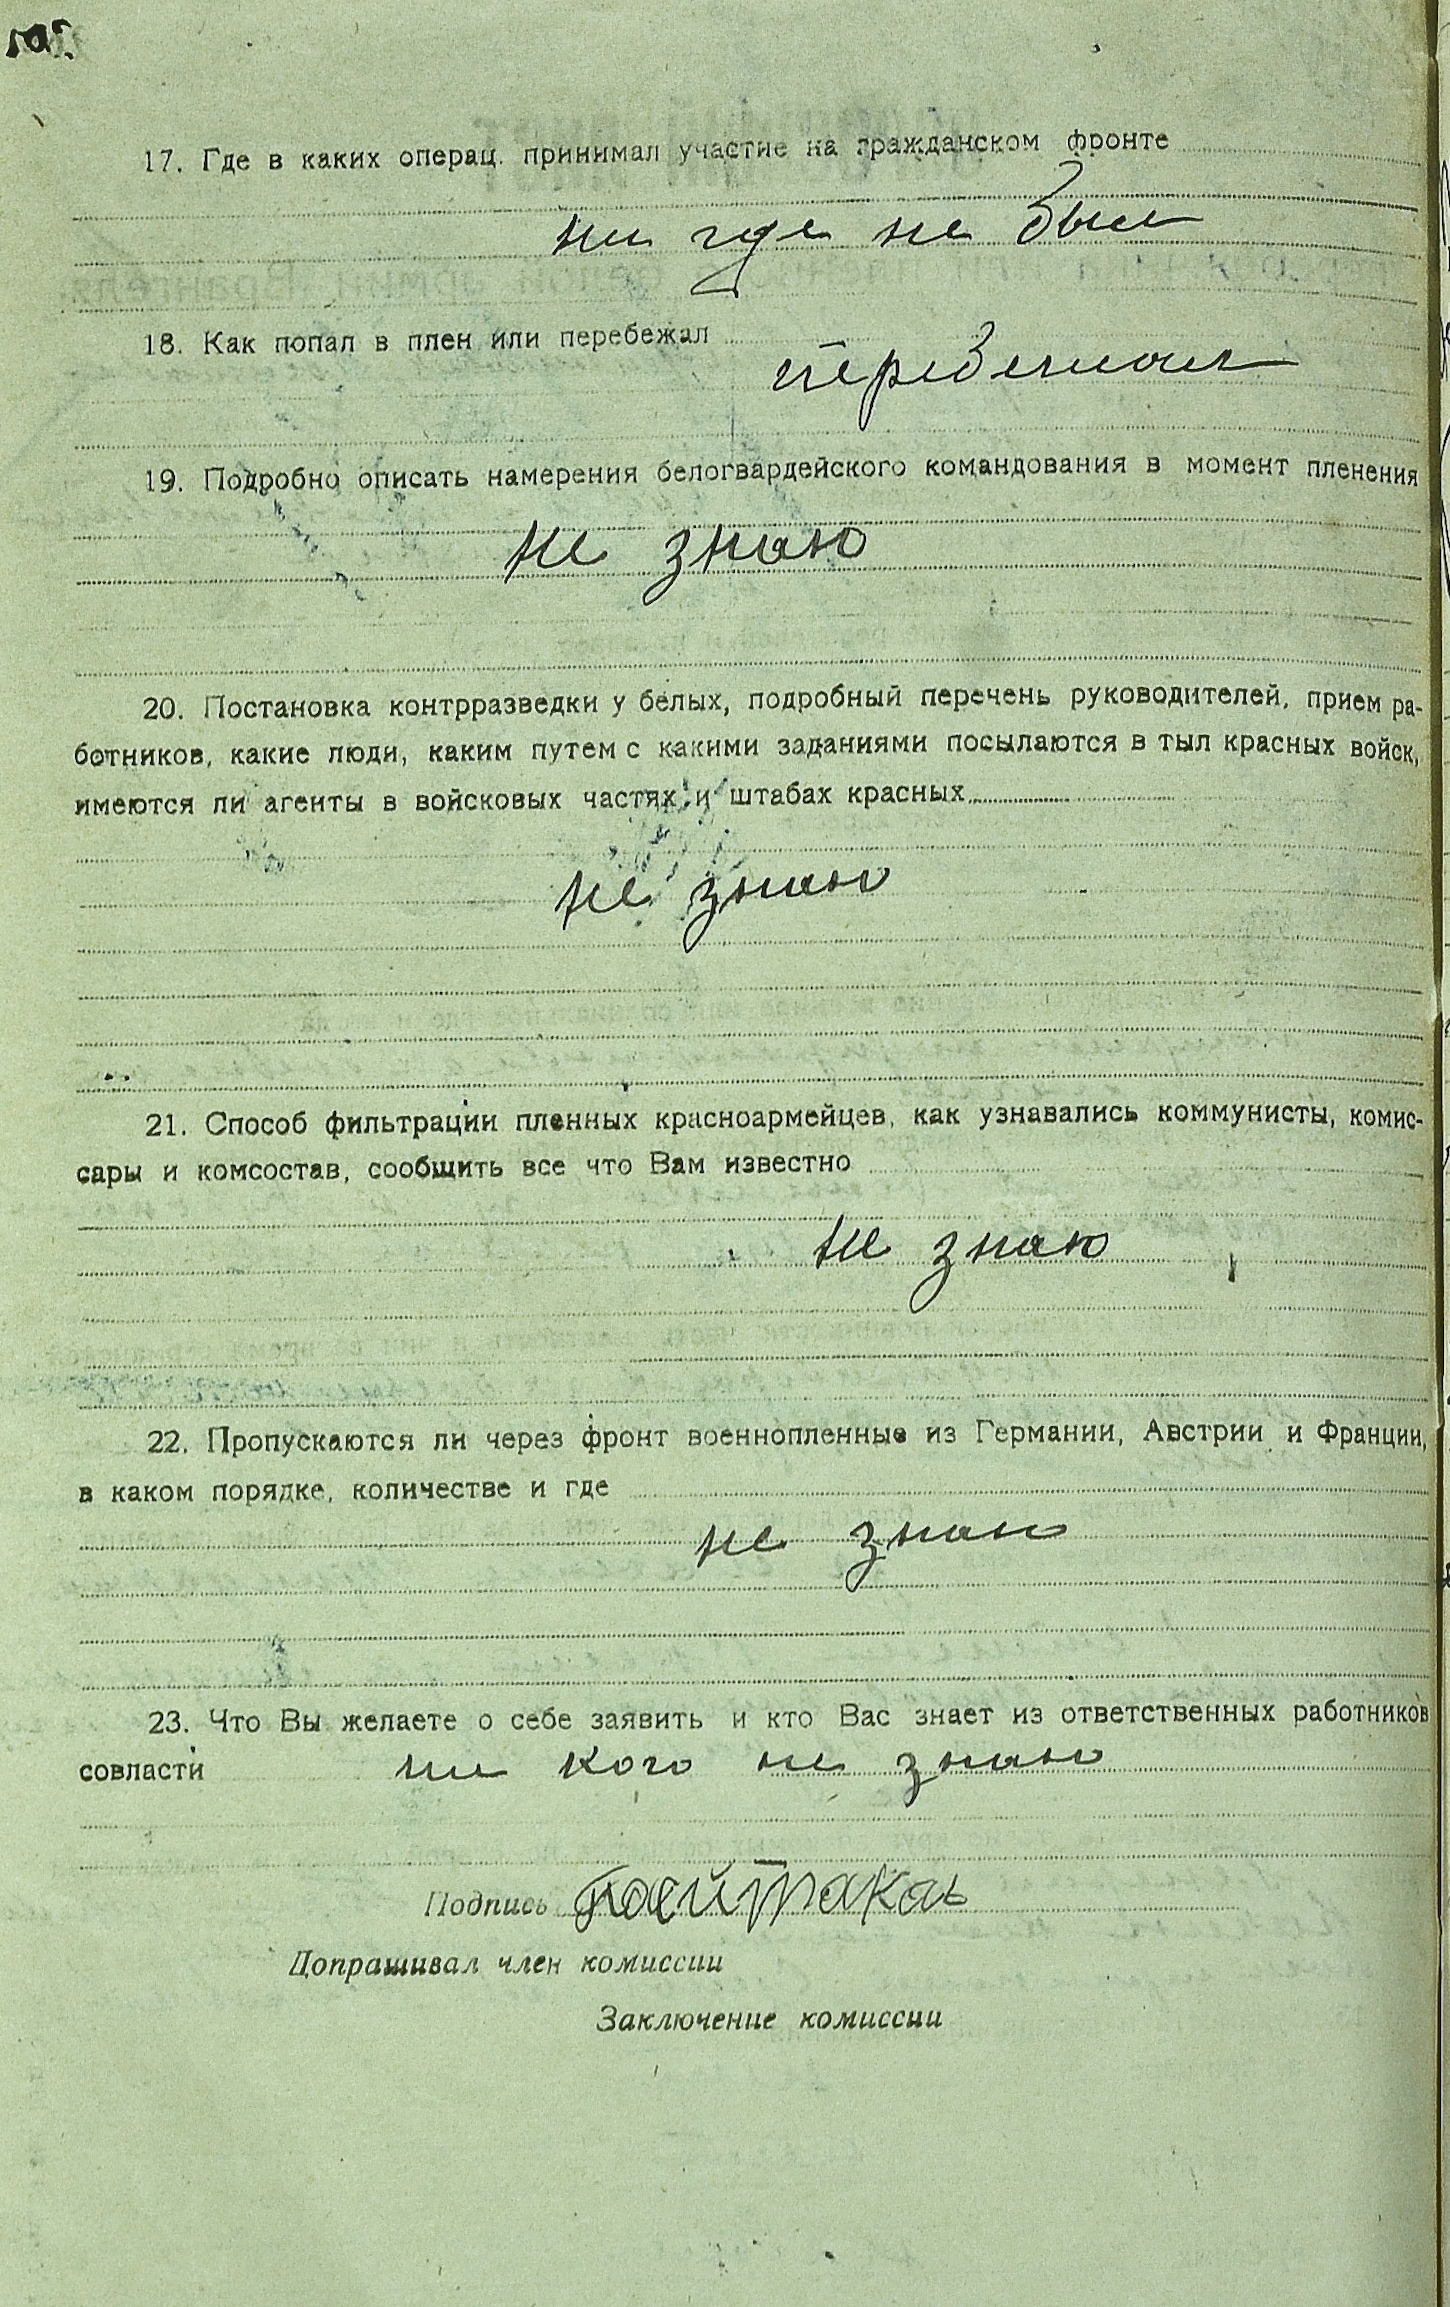 17. Где в каких операц. принимал участие на гражданском фронте
ни где не был
18. Как попал в плен или перебежал
перебежал
19. Подробно описать намерения белогвардейского командования в момент пленения
не знаю
20. Постановка контрразведки у белых, подробный перечень руководителей, прием ра-
ботников, какие люди, каким путем с какими заданиями посылаются в тыл красных войск,
имеются ли агенты в войсковых частях и штабах красных
не знаю
21. Способ фильтрации пленных красноармейцев, как узнавались коммунисты, комис-
сары и комсостав, сообщить все что Вам известно
не знаю
22. Пропускаются ли через фронт военнопленные из Германии, Австрии и Франции,
в каком порядке, количестве и где
не знаю
23. Что Вы желаете о себе заявить и кто Вас знает из ответственных работников
совласти ни кого не знаю
Подпись
Допрашивал член комиссии
Заключение комиссии